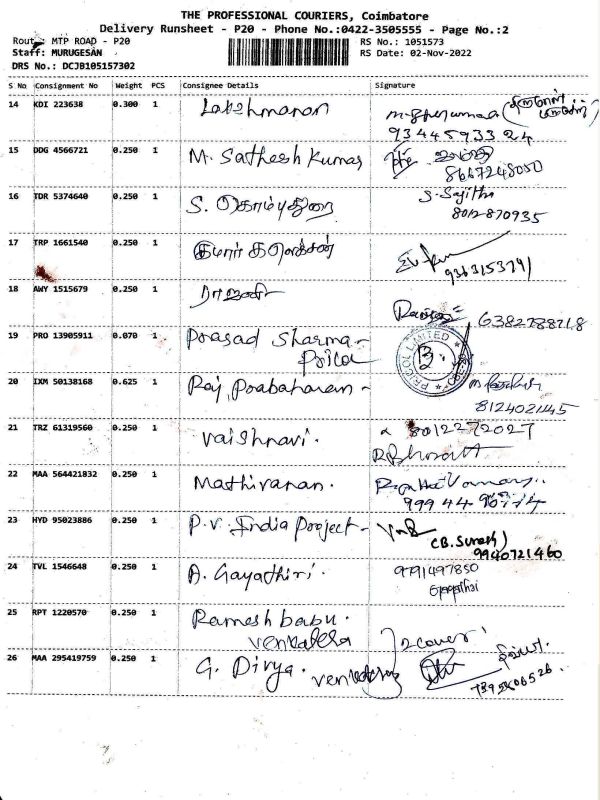 THE PROFESSIONAL COURIERS, Coimbatore
Delivery Runsheet - P20 - Phone No.:0422-3505555 - Page No.:2
Route: MTP ROAD - P20 RS No.: 1051573
Staff: MURUGESAN RS Date: 02-Nov-2022
DRS No.: DCJB105157302
S No Consignment No Weight PCS Consignee Details Signature
14 KDI 223638 0.300 1 Lakshmanan
9344593324
15 DDG 4566721 0.250 1 M. Sathesh Kumar
8667248050
16 TDR 5374640 0.250 1 S. கொம்புதுரை S. Sajitha
8012870935
17 TRP 1661540 0.250 1 குமார்
18 AWY 1515679 0.250 1 ராஜனி
6382788218
19 PRO 13905911 0.070 1 Prasad Sharma-
Pricol
PRICOL LIMITED
20 IXM 50138168 0.625 1 Raj Prabaharan -
8124021145
21 TRZ 61319560 0.250 1 Vaishnavi. 8012272027
R Bharath
22 MAA 564421832 0.250 1 Mathivanan.
999 44
23 HYD 95023886 0.250 1 P.V. India Project -
(B. Suresh)
9940721460
24 TVL 1546648 0.250 1 A. Gayathiri. 9791497850
25 RPT 1220570 0.250 1 Ramesh babu.
Venkatesa 2 cover
26 MAA 295419759 0.250 1 G. Divya. திவ்யா.